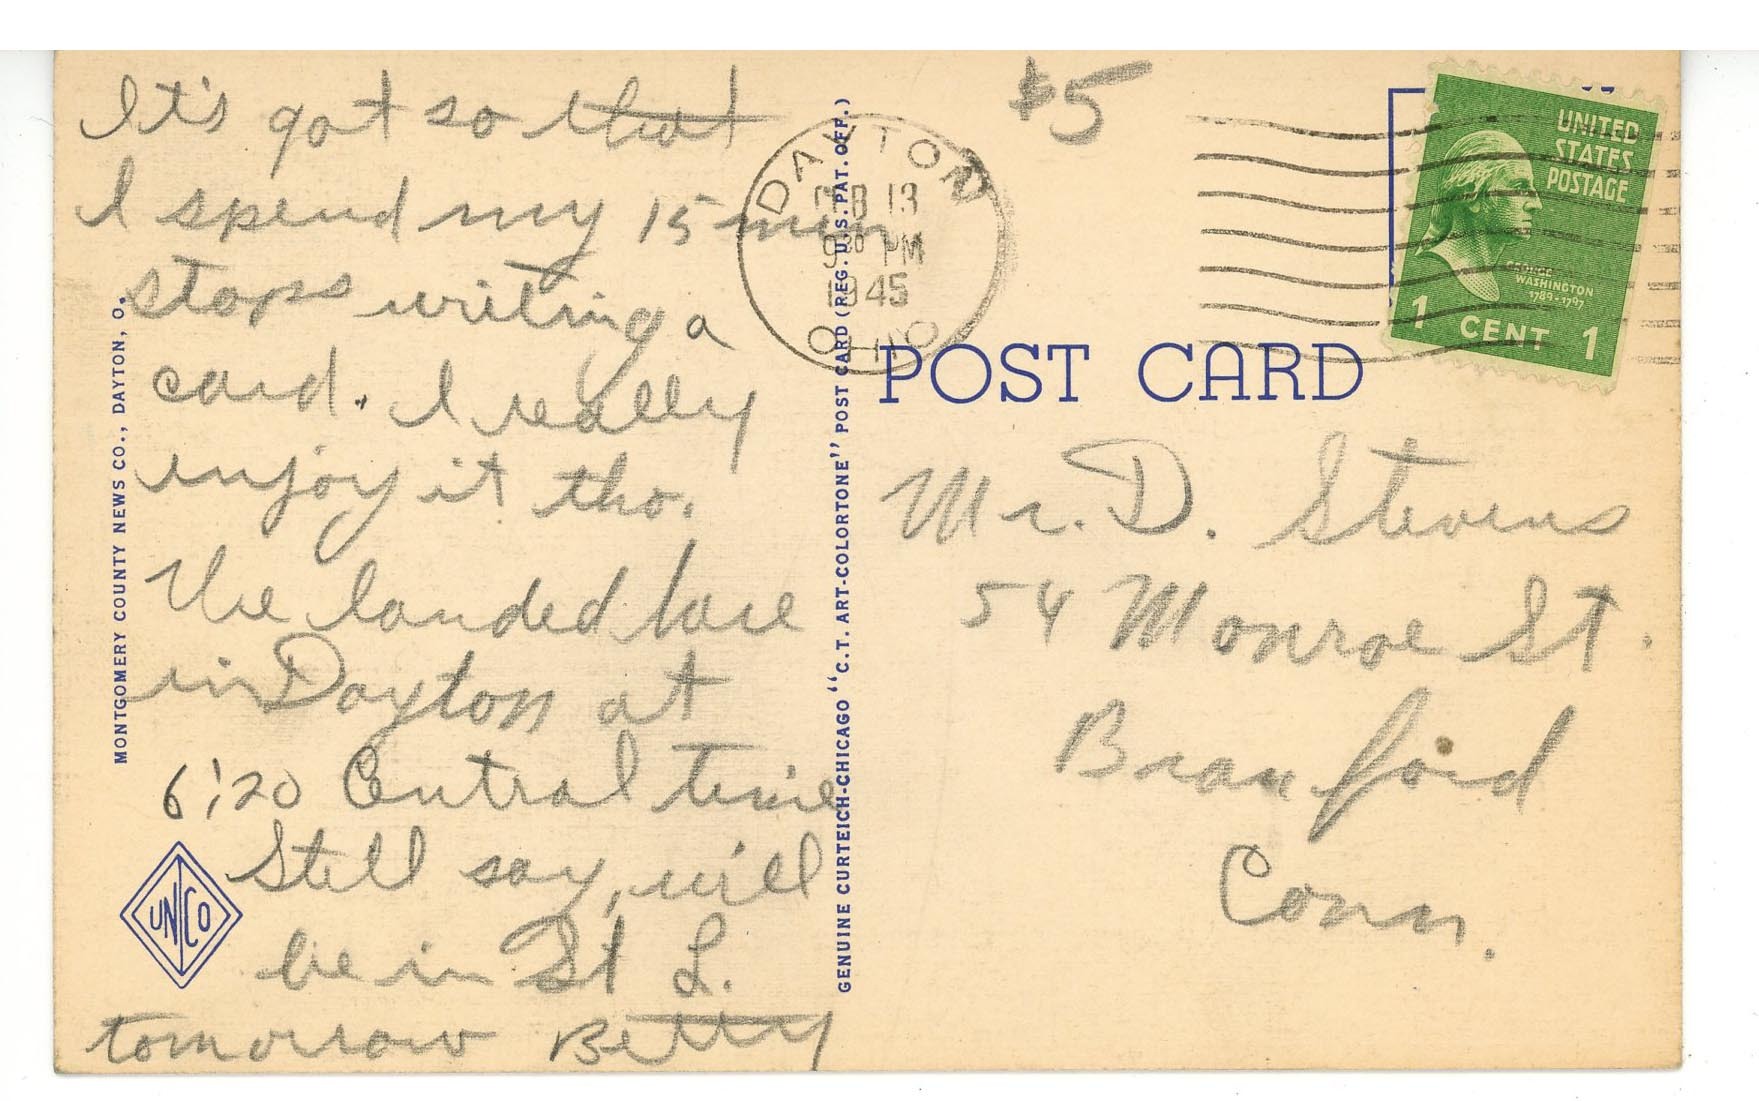 It's got so that
I spend my 15 min
stops writing a
card. I really
enjoy it tho.
We landed here
in Dayton at
6:20 Central time
Still say, will
be in St L.
tomorrow Betty
MONTGOMERY COUNTY NEWS CO., DAYTON, O.
UNCO
GENUINE CURTEICH-CHICAGO "C.T. ART-COLORTONE" POST CARD (REG. U.S. PAT. OFF.)
#5
DAYTON
FEB 13
9 30 PM
1945
OHIO
UNITED
STATES
POSTAGE
GEORGE
WASHINGTON
1789-1797
1 CENT 1
POST CARD
Mr. D. Stevens
54 Monroe St.
Branford
Conn.